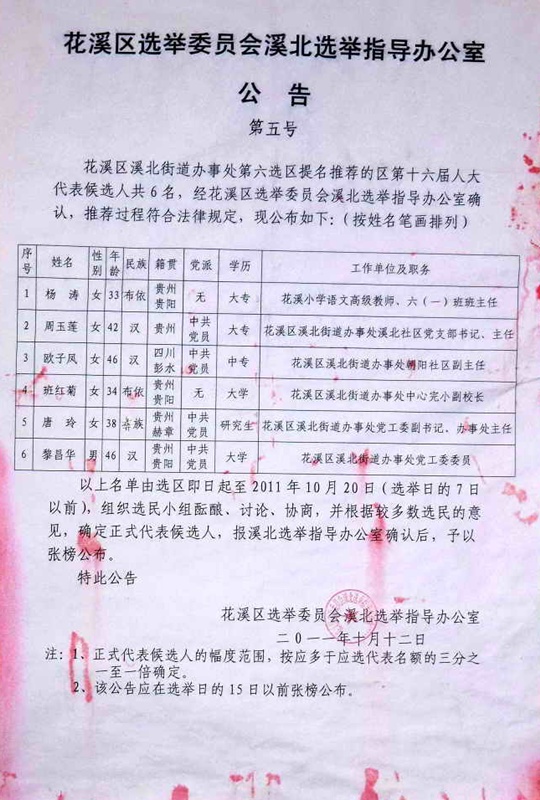 花溪区选举委员会溪北选举指导办公室
公 告
第五号
花溪区溪北街道办事处第六选区提名推荐的区第十六届人大
代表候选人共6名，经花溪区选举委员会溪北选举指导办公室确
认，推荐过程符合法律规定，现公布如下：（按姓名笔画排列）
序号 姓名 性别 年龄 民族 籍贯 党派 学历 工作单位及职务
1 杨 涛 女 33 布依 贵州贵阳 无 大专 花溪小学语文高级教师、六（一）班班主任
2 周玉莲 女 42 汉 贵州 中共党员 大专 花溪区溪北街道办事处溪北社区党支部书记、主任
3 欧子凤 女 46 汉 四川彭水 中共党员 中专 花溪区溪北街道办事处朝阳社区副主任
4 班红菊 女 34 布依 贵州贵阳 无 大学 花溪区溪北街道办事处中心完小副校长
5 唐 玲 女 38 族 贵州赫章 中共党员 研究生 花溪区溪北街道办事处党工委副书记、办事处主任
6 黎昌华 男 46 汉 贵州贵阳 中共党员 大学 花溪区溪北街道办事处党工委委员
以上名单由选区即日起至2011年10月20日（选举日的7日
以前），组织选民小组酝酿、讨论、协商，并根据较多数选民的意
见，确定正式代表候选人，报溪北选举指导办公室确认后，予以
张榜公布。
特此公告
花溪区选举委员会溪北选举指导办公室
二〇一一年十月十二日
注：1、正式代表候选人的幅度范围，按应多于应选代表名额的三分之
一至一倍确定。
2、该公告应在选举日的15日以前张榜公布。